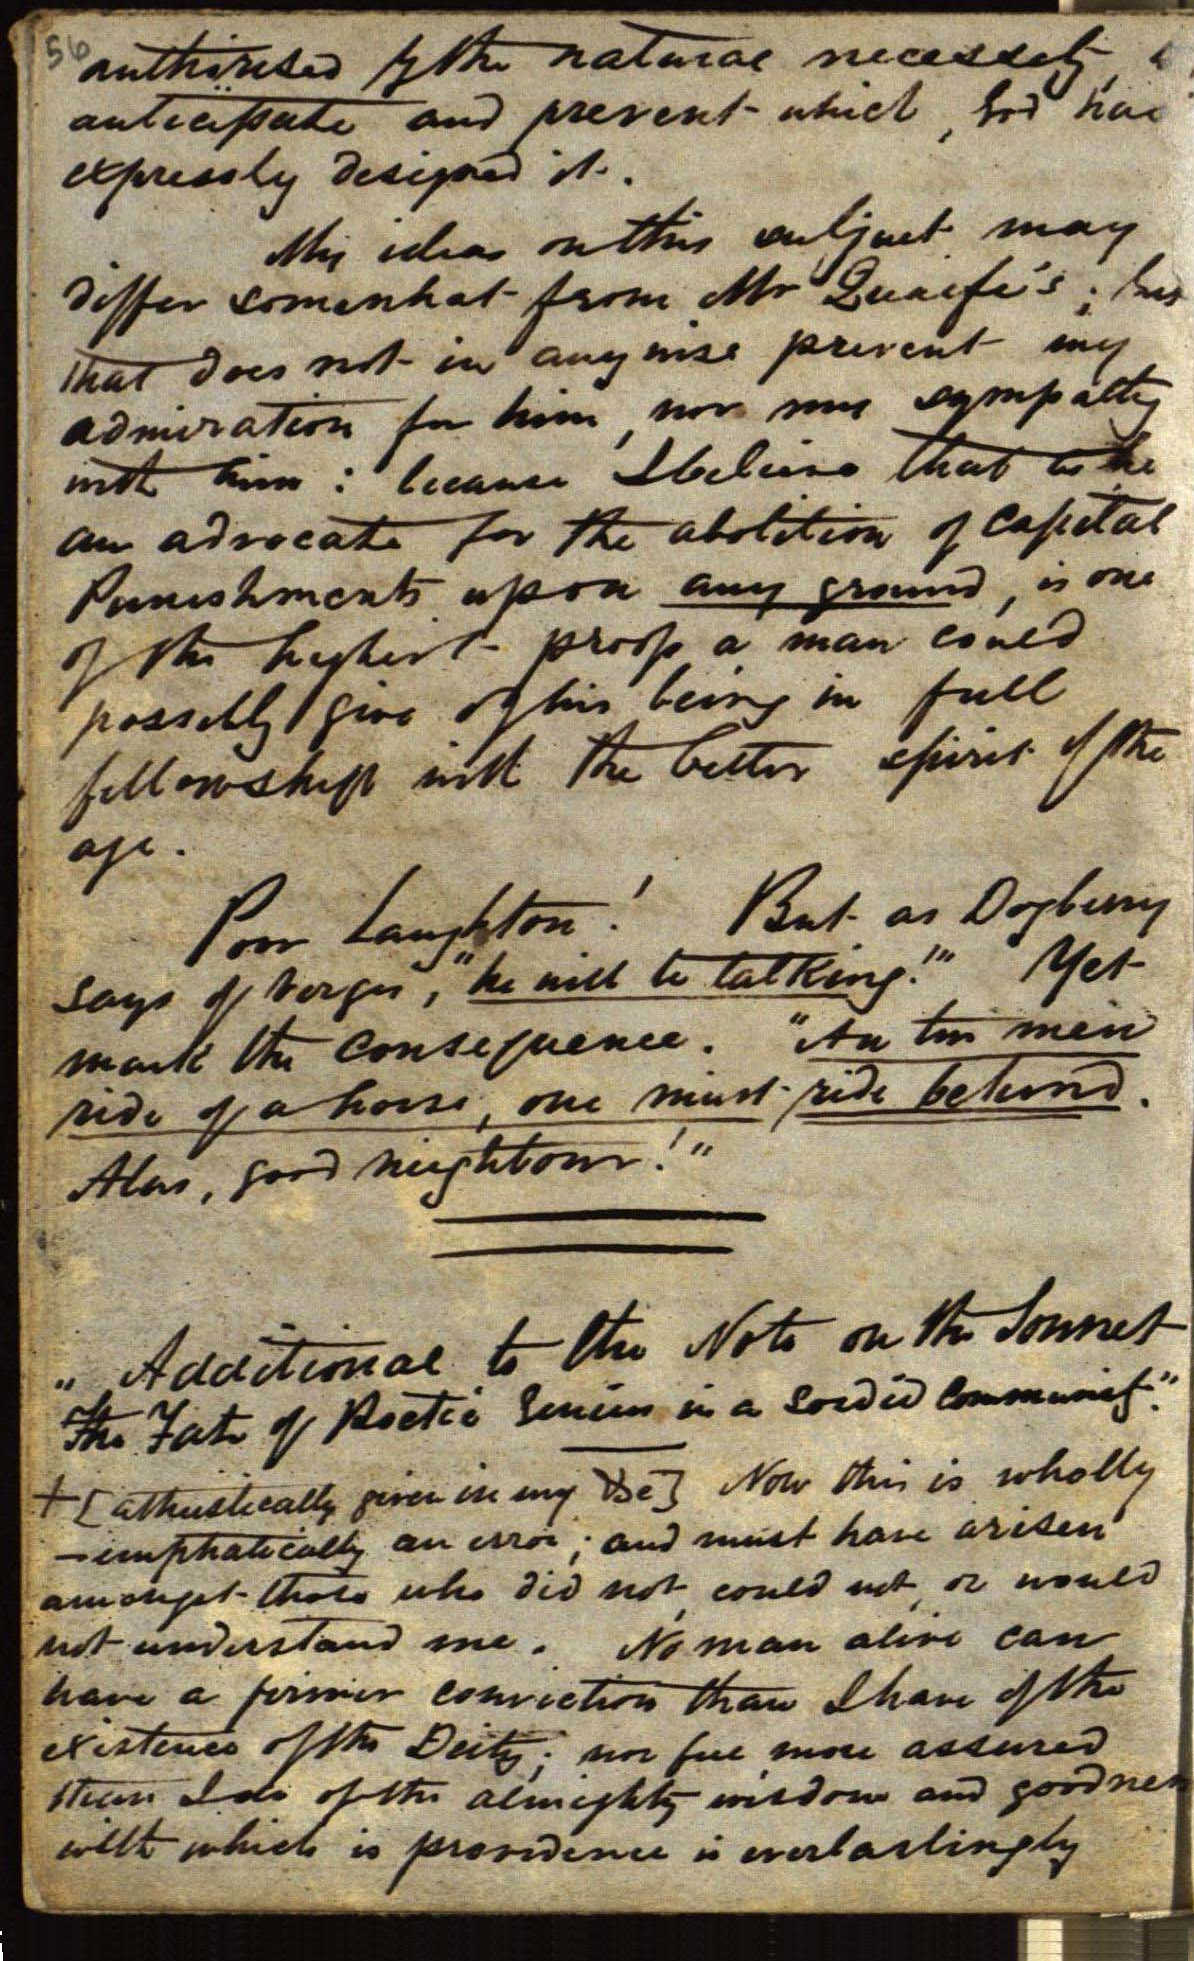 56
authorised by the natural necessity,
anticipate and prevent which, God has
expressly designed it.
My ideas on this subject may
differ somewhat from Mr Quaife's; but
that does not in any wise prevent my
admiration for him, nor my sympathy
with him: because I believe that to be
an advocate for the abolition of Capital
Punishments upon any ground, is one
of the highest proofs a man could
possibly give of his being in full
fellowship with the better spirit of the
age.
Poor Laughton! But as Dogberry
says of Verges, "he will be talking!" Yet
mark the consequence. "An two men
ride of a horse, one must ride behind.
Alas, good neighbour!"
"Additional to the Note on the Sonnet
The Fate of Poetic Genius in a Sordid Community."
+ [atheistically given in my] Now this is wholly
—emphatically an error; and must have arisen
amongst those who did not, could not, or would
not understand me. No man alive can
have a firmer conviction than I have of the
existence of the Deity; nor feel more assured
than I do of the almighty wisdom and goodness
with which is providence is everlastingly